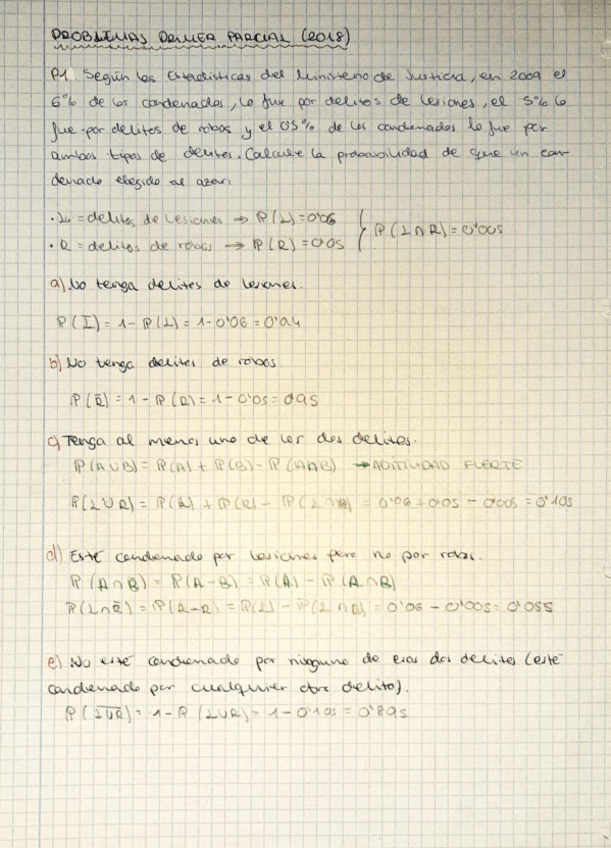 PROBLEMAS PRIMER PARCIAL (2018)
P1. Según las Estadísticas del Ministerio de Justicia, en 2009 el
6% de los condenados, lo fue por delitos de lesiones, el 5% lo
fue por delitos de robos y el 0'5% de los condenados lo fue por
ambos tipos de delitos. Calcule la probabilidad de que un con-
denado elegido al azar:
· L = delitos de lesiones → P(L) = 0'06
· R = delitos de robos → P(R) = 0'05 } P(L∩R) = 0'005
a) No tenga delitos de lesiones.
P(L̄) = 1 - P(L) = 1 - 0'06 = 0'94
b) No tenga delitos de robos.
P(R̄) = 1 - P(R) = 1 - 0'05 = 0'95
c) Tenga al menos uno de los dos delitos.
P(A∪B) = P(A) + P(B) - P(A∩B) → ADITIVIDAD FUERTE
P(L∪R) = P(L) + P(R) - P(L∩R) = 0'06 + 0'05 - 0'005 = 0'105
d) Esté condenado por lesiones pero no por robos.
P(A∩B̄) = P(A-B) = P(A) - P(A∩B)
P(L∩R̄) = P(L-R) = P(L) - P(L∩R) = 0'06 - 0'005 = 0'055
e) No esté condenado por ninguno de esos dos delitos (esté
condenado por cualquier otro delito).
P(L̅∪̅R̅) = 1 - P(L∪R) = 1 - 0'105 = 0'895